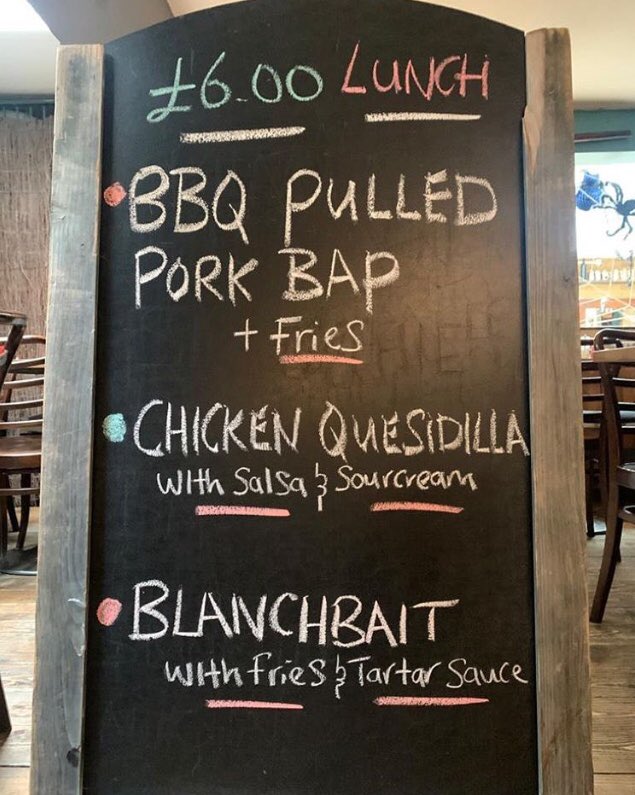 £6.00 LUNCH
BBQ PULLED
PORK BAP
+ Fries
CHICKEN QUESIDILLA
with Salsa & Sourcream
BLANCHBAIT
with fries & Tartar Sauce